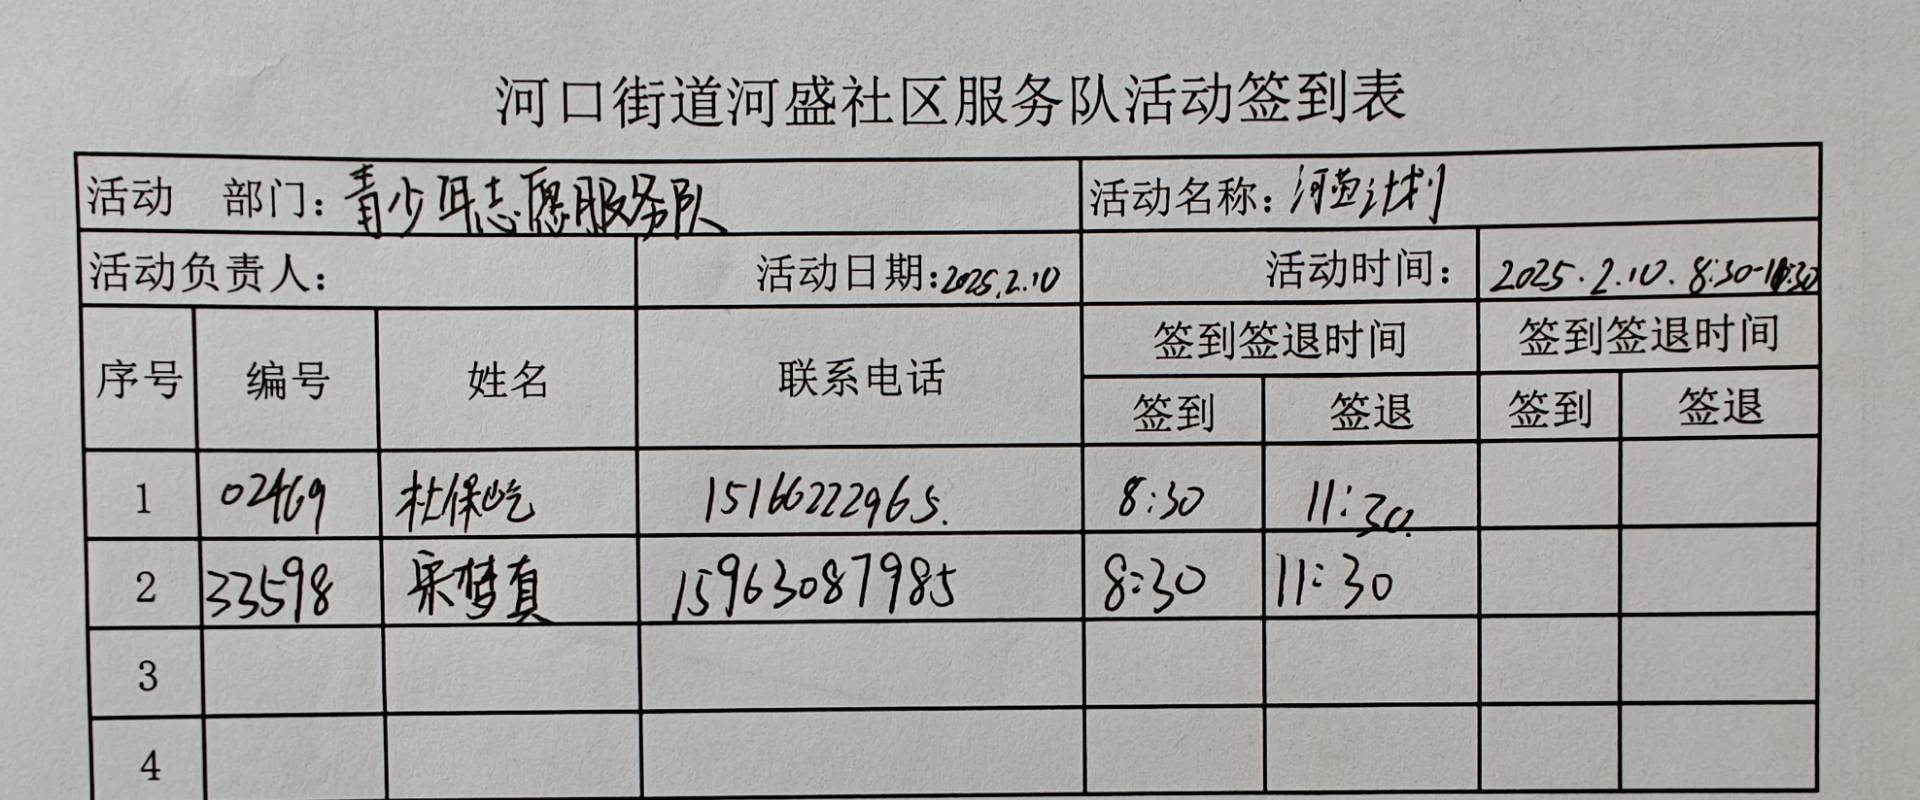 河口街道河盛社区服务队活动签到表
活动 部门：青少年志愿服务队 活动名称：河萤计划
活动负责人： 活动日期：2025.2.10 活动时间： 2025.2.10. 8:30-11:30
序号 编号 姓名 联系电话 签到签退时间 签到签退时间
签到 签退 签到 签退
1 02469 杜保屹 15166222965. 8:30 11:30.
2 33598 宋梦真 15963087985 8:30 11:30
3
4